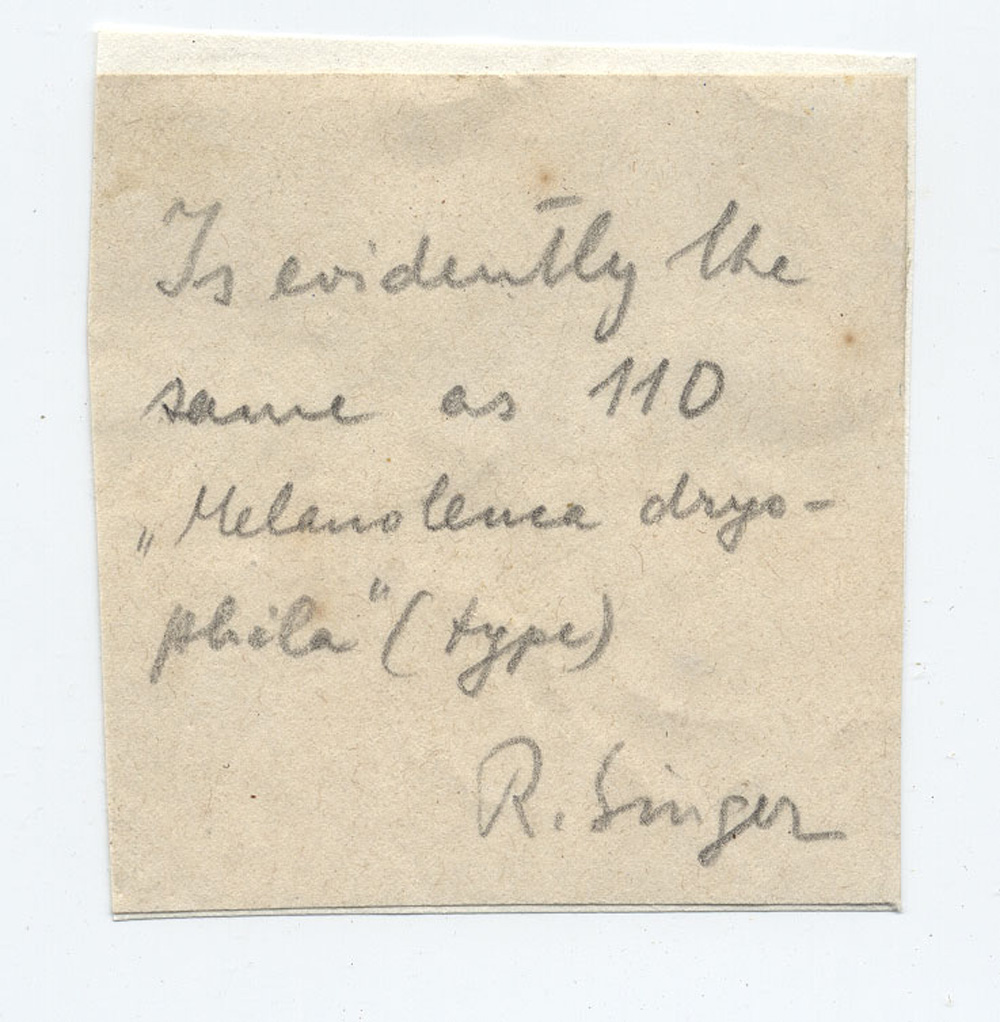 Is evidently the
same as 110
„Melanoleuca dryo-
phila" (type)
R. Singer